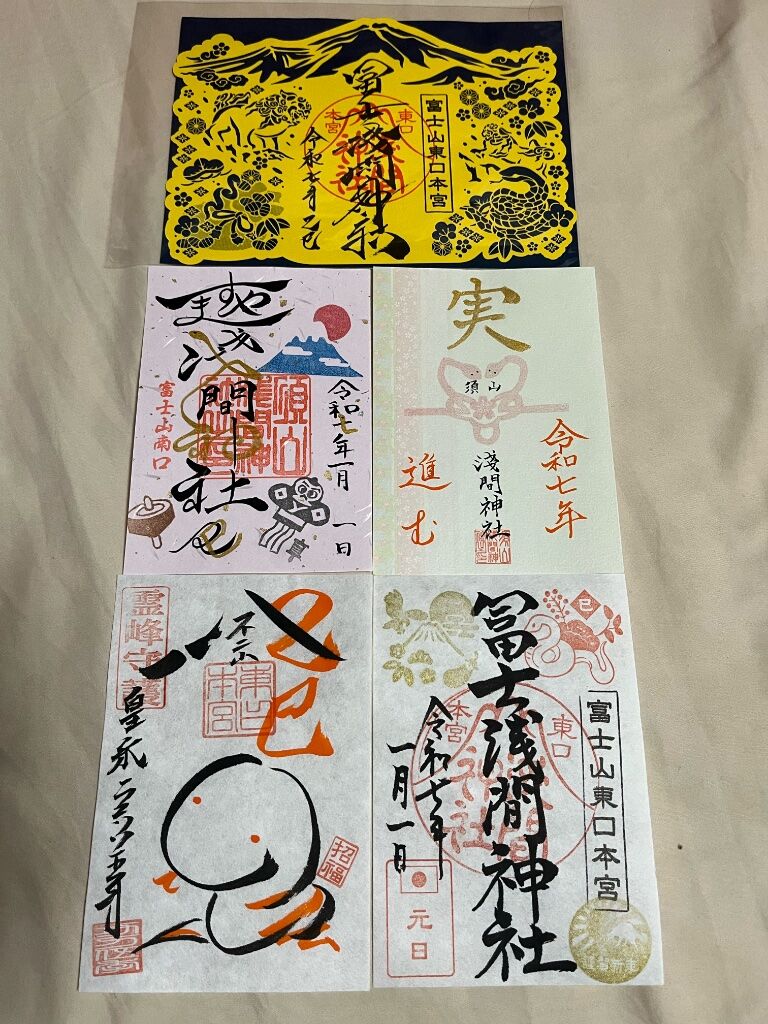 富士山東口本宮
冨士浅間神社
東口
本宮
令和七年 乙巳
須山
浅間神社
富士山南口
令和七年一月一日
実
須山
浅間神社
令和七年
進む
乙巳
霊峰守護
東口
本宮
皇承二六八五年
招福
富士山東口本宮
冨士浅間神社
東口
本宮
令和七年
一月一日
巳
元日